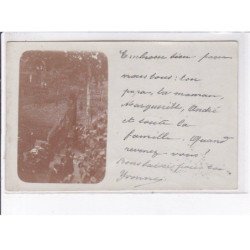 Embrasse bien pour
nous tous: ton
papa, ta maman,
Marguerite, André
et toute la
famille. Quand
revenez-vous?
Bons baisers pour
Yvonne